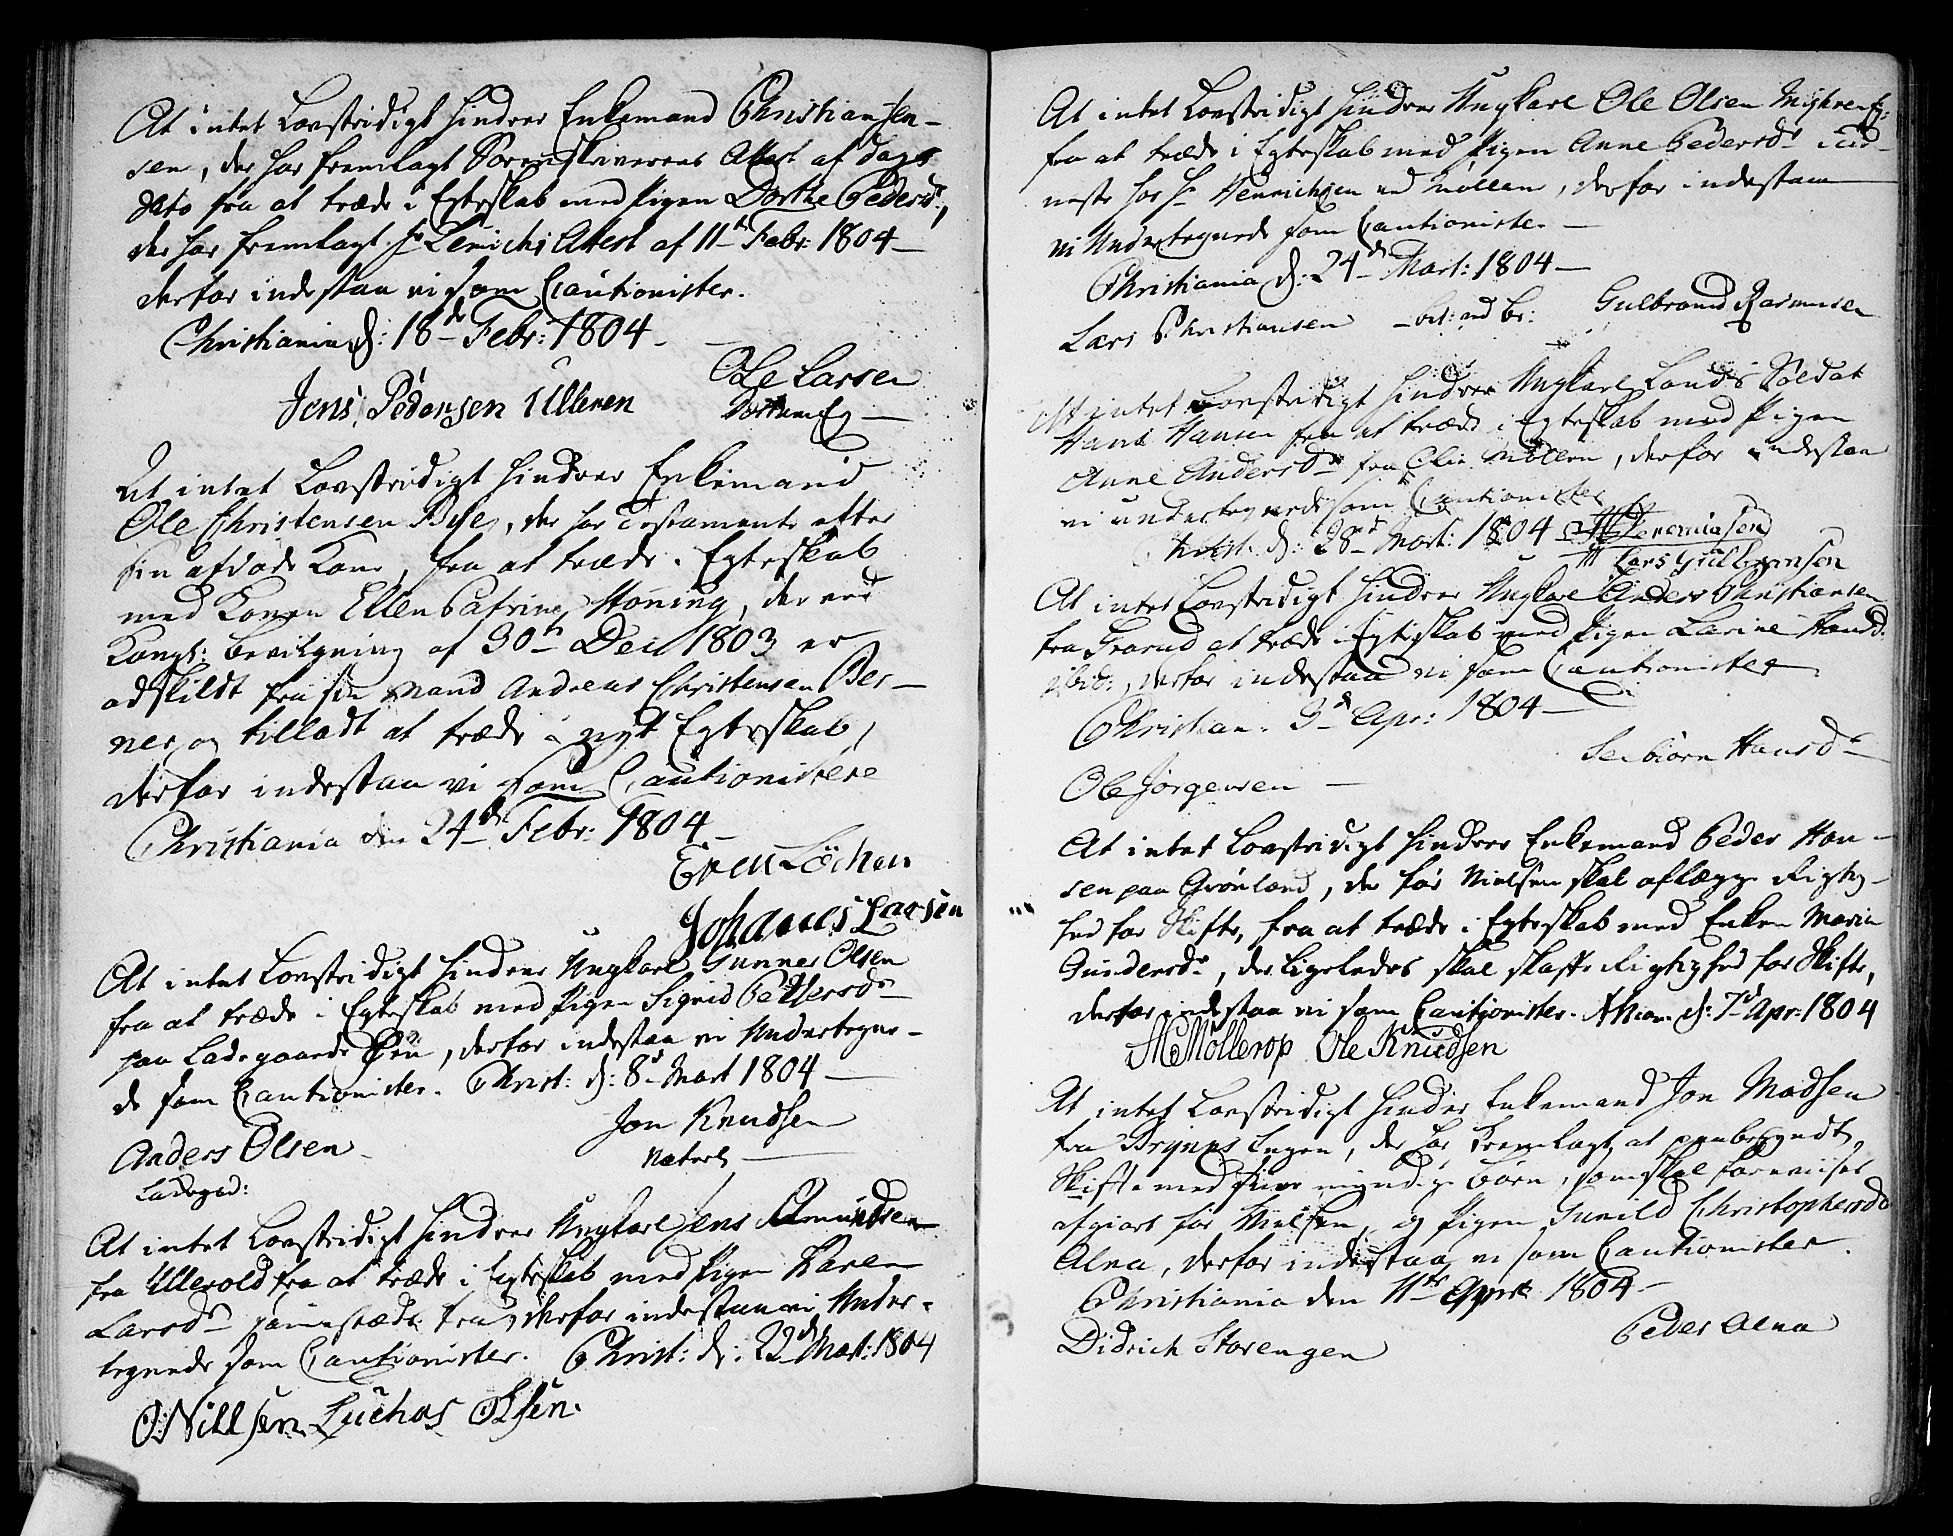 At intet Lovstridigt hindrer Enkemand Christian Jen-
sen, der har fremlagt Sorenskriverens Attest af dags
dato fra at træde i Egteskab med Pigen Dorthe Pedersd:,
der har fremlagt Hr Lemichs Attest af 11te Febr: 1804 —
derfor indestaa vi som Cautionister.
Christiania d: 18de Febr: 1804 —
Ole Larsen
Jens Pedersen Ulleren
At intet Lovstridigt hindrer Enkemand
Ole Christensen Bye, der har Testamente efter
sin afdøde Kone, fra at træde i Egteskab
med Konen Ellen Catrine Høning, der ved
Kongl: Bevilgning af 30te Dec 1803 er
adskildt fra sin Mand Andreas Christensen Ber-
ner, og tilladt at træde i nyt Egteskab,
derfor indestaa vi som Cautionistere
Christiania den 24de Febr: 1804 —
Even Løchen
Johanes Larsen
At intet Lovstridigt hindrer Ungkarl Gunner Olsen
fra at træde i Egteskab med Pigen Sigrid Pettersdr
paa Ladegaards Øen, derfor indestaa vi Undertegne-
de som Cautionister. Christ: d: 8de Mart 1804 —
Jon Knudsen
Anders Olsen
Ladegrd:
At intet Lovstridigt hindrer Ungkarl Jens Amundsen
fra Ullevold fra at træde i Egteskab med Pigen Karen
Larsdr sammestæds fra, derfor indestaa vi Under-
tegnede som Cautionister. Christ: d: 22de Mart: 1804
O: Nillsen Luchas Olsen.
At intet Lovstridigt hindrer Ungkarl Ole Olsen
fra at træde i Egteskab med Pigen Anne Pedersdr
neste hos Hr Henrichsen ved Møllen, derfor indestaa
vi Undertegnede som Cautionister —
Christiania d: 24de Mart: 1804 —
Lars Christiansen Gulbrand Rasmusen
At intet Lovstridigt hindrer Ungkarl Lands Soldat
Hans Hansen fra at træde i Egteskab med Pigen
Anne Andersdr fra Møllen, derfor indestaa
vi undertegnede som Cautionister
Christ. d: 28de Mart: 1804 Jeremiasen
Lars Gulbrensen
At intet Lovstridigt hindrer Ungkarl Anders Christiansen
fra Grorud at træde i Egteskab med Pigen Larine Hansd.
ibid:, derfor indestaa vi som Cautionister
Christian. 3de Apr: 1804 —
Seibiørn Hansdr
Ole Jørgensen —
At intet Lovstridigt hindrer Enkemand Peder Han-
sen paa Grønland, der før Vielsen skal aflægge Rigtig-
hed for Skifte, fra at træde i Egteskab med Enken Maria
Gundersdr, der ligeledes skal skaffe Rigtighed for Skifte,
derfor indestaa vi som Cautionister. d: 7de Apr: 1804
Møllerop Ole Knudsen
At intet Lovstridigt hindrer Enkemand Jon Madsen
fra Bryns Engen, der har fremlagt at paabegyndt
Skifte med sine myndige Børn, som skal foreviises
afgiort før Vielsen, og Pigen Gunild Christophersdr
Alna, derfor indestaa vi som Cautionister.
Christiania den 11te April 1804 —
Peder Alna
Didrich Storengen